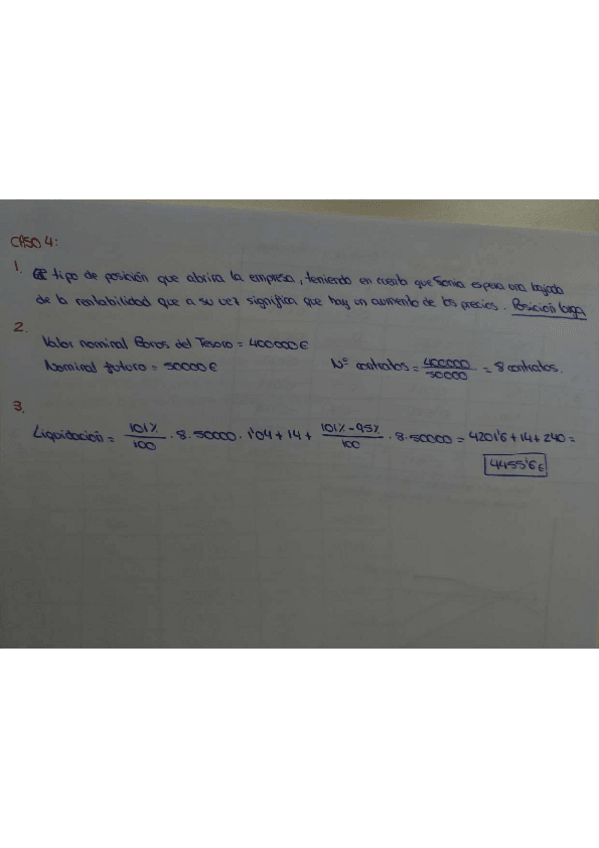 CASO 4:
1. tipo de posición que abrira la empresa, teniendo en cuenta que Sonia espera una bajada
de la rentabilidad que a su vez significa que hay un aumento de los precios. Posición larga
2.
Valor nominal Bonos del Tesoro = 400000€
Nominal futuro = 50000€ Nº contratos = 400000/50000 = 8 contratos.
3.
Liquidación = 101%/100 · 8 · 50000 · 1'04 + 14 + 101% - 95%/100 · 8 · 50000 = 4201'6 + 14 + 240 =
4455'6€